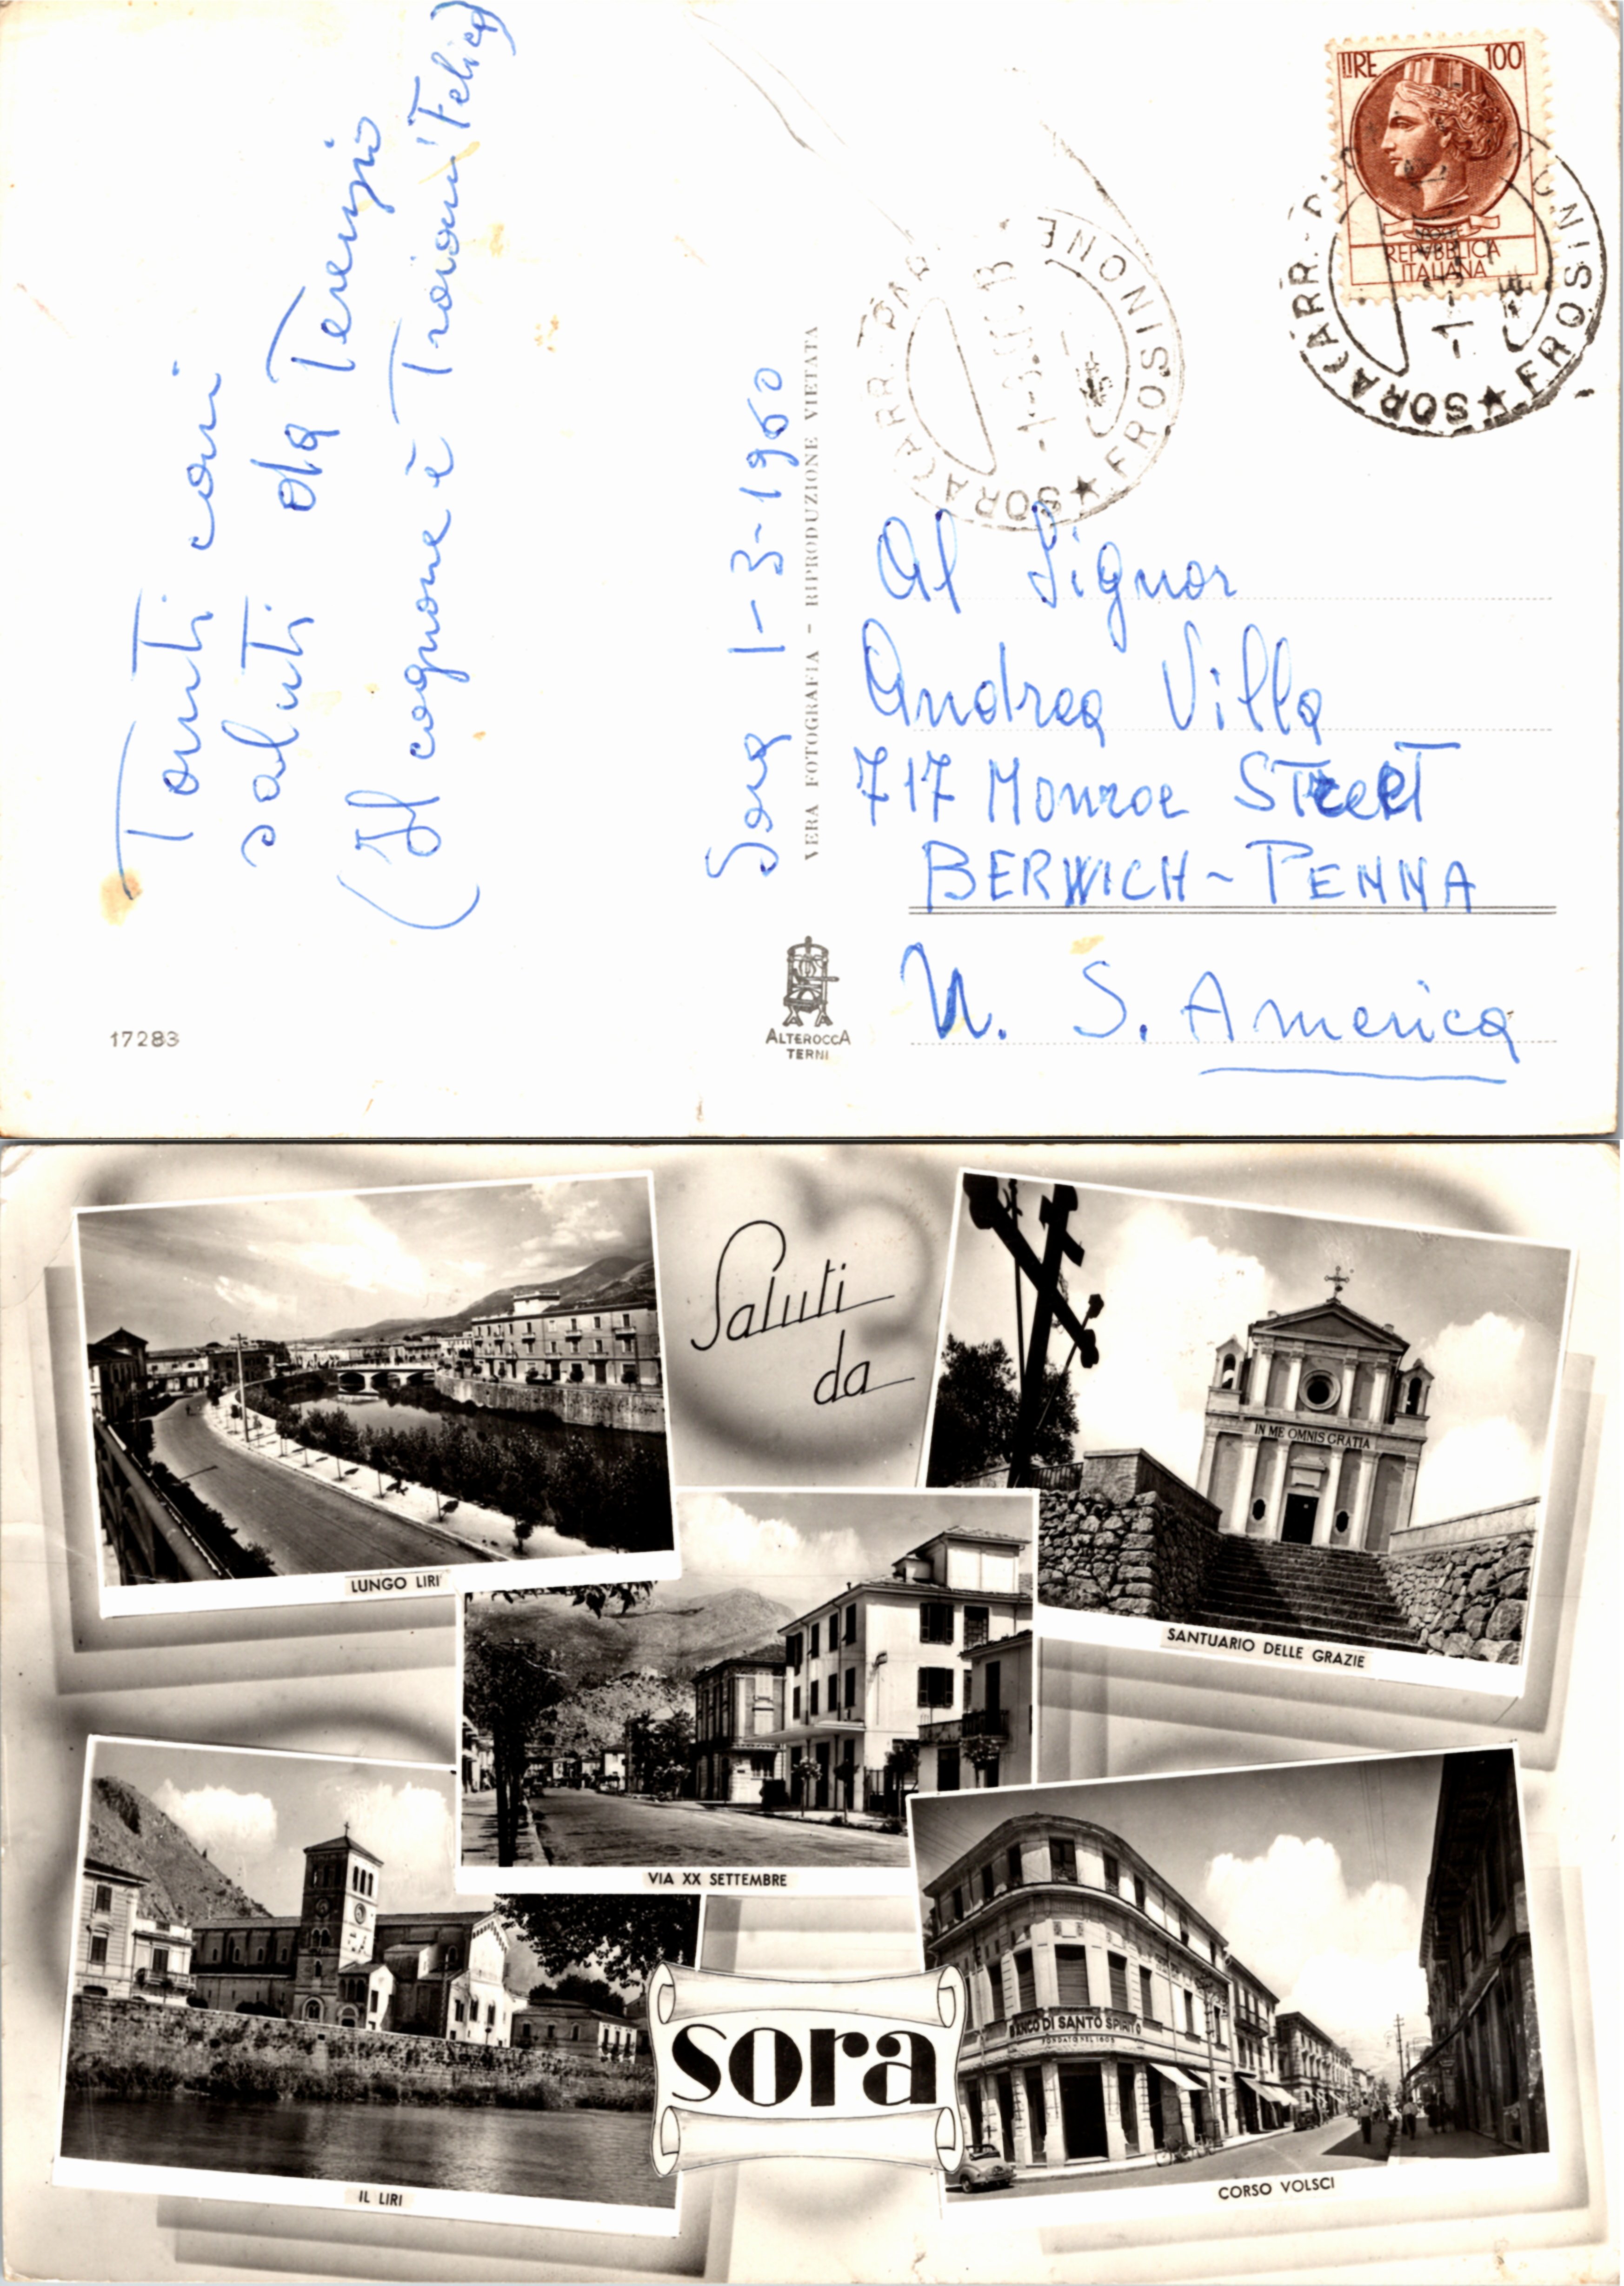 Tanti cari
saluti da Terenzio
(Il cognome è Troiani Felice)
Sora 1-3-1960
VERA FOTOGRAFIA - RIPRODUZIONE VIETATA
LIRE 100
POSTE
REPVBBLICA
ITALIANA
SORA (ARR. ★ FROSINONE
SORA (ARR. ★ FROSINONE
Al Signor
Andrea Villa
717 Monroe STreeT
BERWICH - PENNA
U. S. America
17283
ALTEROCCA
TERNI
Saluti
da
IN ME OMNIS GRATIA
LUNGO LIRI
SANTUARIO DELLE GRAZIE
VIA XX SETTEMBRE
BANCO DI SANTO SPIRITO
FONDATO NEL 1605
sora
IL LIRI
CORSO VOLSCI